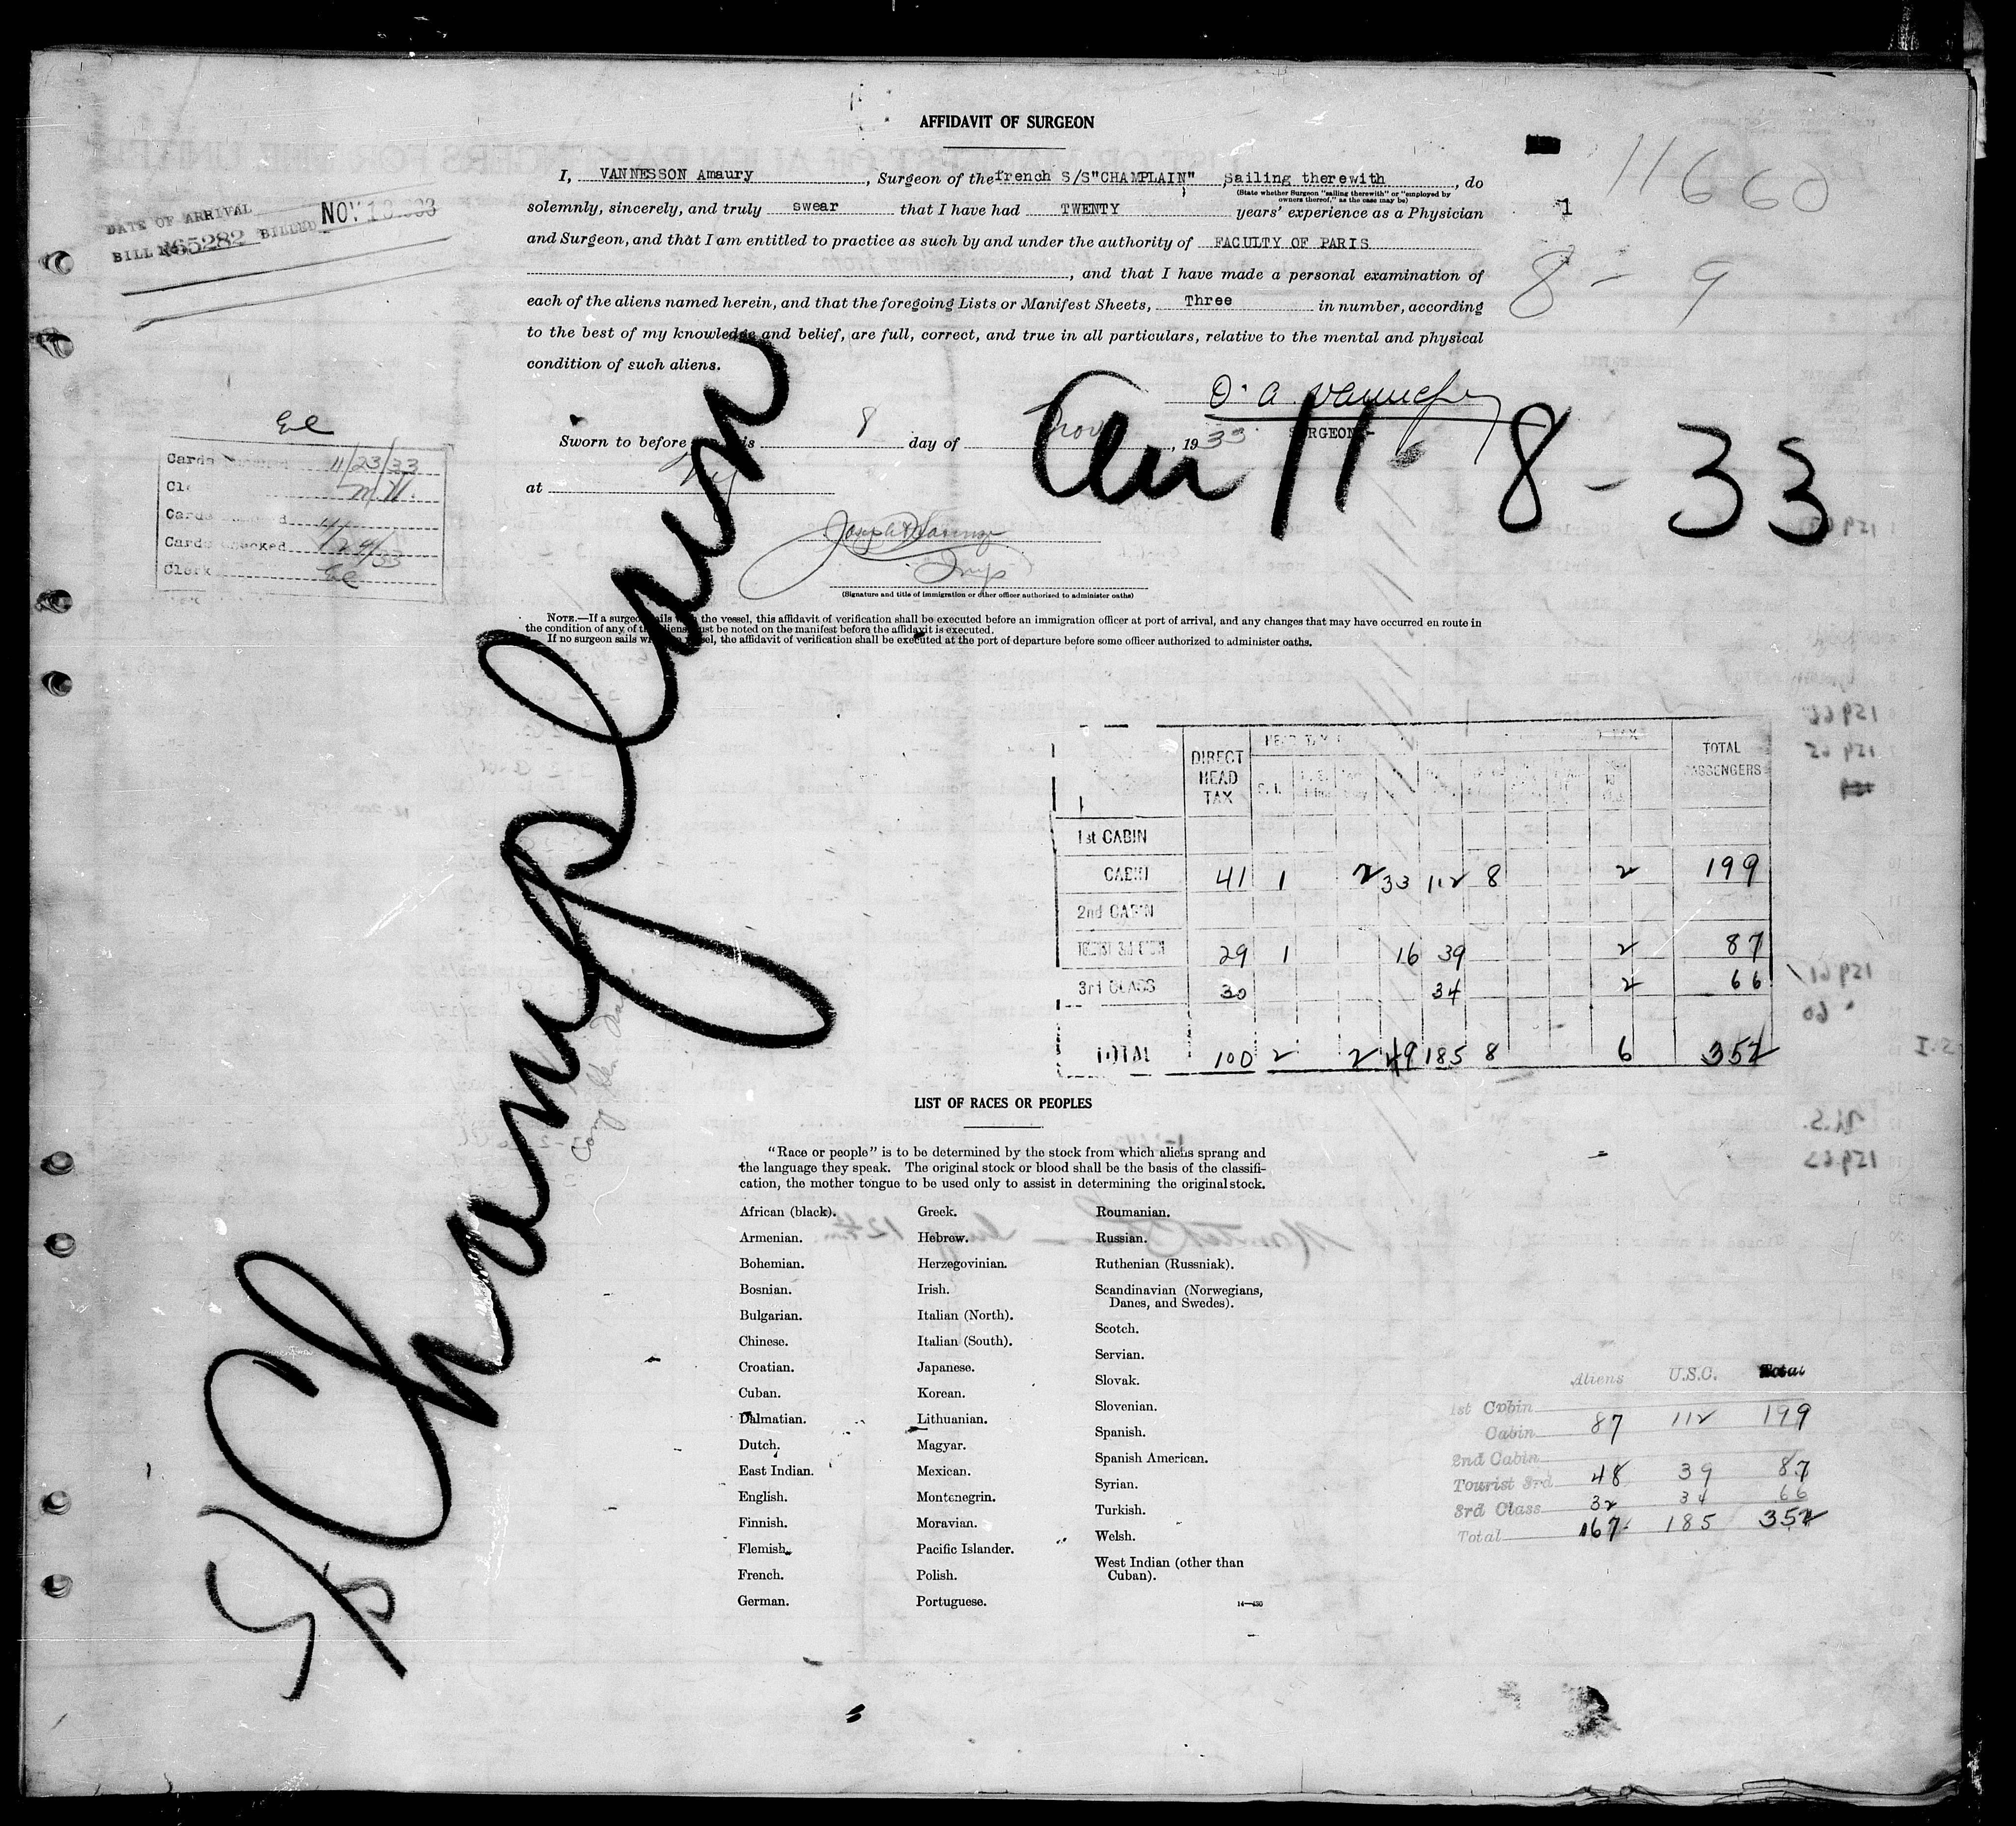 AFFIDAVIT OF SURGEON
I, VANNESSON Amaury, Surgeon of the french S/S"CHAMPLAIN", sailing therewith, do
(State whether Surgeon "sailing therewith" or "employed by owners thereof," as the case may be)
solemnly, sincerely, and truly swear that I have had TWENTY years' experience as a Physician
and Surgeon, and that I am entitled to practice as such by and under the authority of FACULTY OF PARIS
, and that I have made a personal examination of
each of the aliens named herein, and that the foregoing Lists or Manifest Sheets, Three in number, according
to the best of my knowledge and belief, are full, correct, and true in all particulars, relative to the mental and physical
condition of such aliens.
11660
1
8 - 9
DATE OF ARRIVAL
BILL No 65282 BILLED NOV
SURGEON
Sworn to before is 8 day of Nov, 1933
at NY
11 - 8 - 33
Cards 11/23/33
Cl M.W.
Cards
Cards Checked 11/24/33
Clerk
(Signature and title of immigration or other officer authorized to administer oaths)
NOTE.—If a surgeon sails with the vessel, this affidavit of verification shall be executed before an immigration officer at port of arrival, and any changes that may have occurred en route in
the condition of any of the aliens must be noted on the manifest before the affidavit is executed.
If no surgeon sails with vessel, the affidavit of verification shall be executed at the port of departure before some officer authorized to administer oaths.
S/S Champlain
DIRECT HEAD TAX TOTAL PASSENGERS
1st CABIN
CABIN 41 1 2 33 112 8 2 199
2nd CABIN
TOURIST 3rd CABIN 29 1 16 39 2 87
3rd CLASS 30 34 2 66
TOTAL 100 2 2 49 185 8 6 352
LIST OF RACES OR PEOPLES
"Race or people" is to be determined by the stock from which aliens sprang and
the language they speak. The original stock or blood shall be the basis of the classifi-
cation, the mother tongue to be used only to assist in determining the original stock.
African (black).
Armenian.
Bohemian.
Bosnian.
Bulgarian.
Chinese.
Croatian.
Cuban.
Dalmatian.
Dutch.
East Indian.
English.
Finnish.
Flemish.
French.
German.
Greek.
Hebrew.
Herzegovinian.
Irish.
Italian (North).
Italian (South).
Japanese.
Korean.
Lithuanian.
Magyar.
Mexican.
Montenegrin.
Moravian.
Pacific Islander.
Polish.
Portuguese.
Roumanian.
Russian.
Ruthenian (Russniak).
Scandinavian (Norwegians,
Danes, and Swedes).
Scotch.
Servian.
Slovak.
Slovenian.
Spanish.
Spanish American.
Syrian.
Turkish.
Welsh.
West Indian (other than
Cuban).
14—430
Aliens U.S.C. Total
1st Cabin
Cabin 87 112 199
2nd Cabin
Tourist 3rd 48 39 87
3rd Class 32 34 66
Total 167 185 352